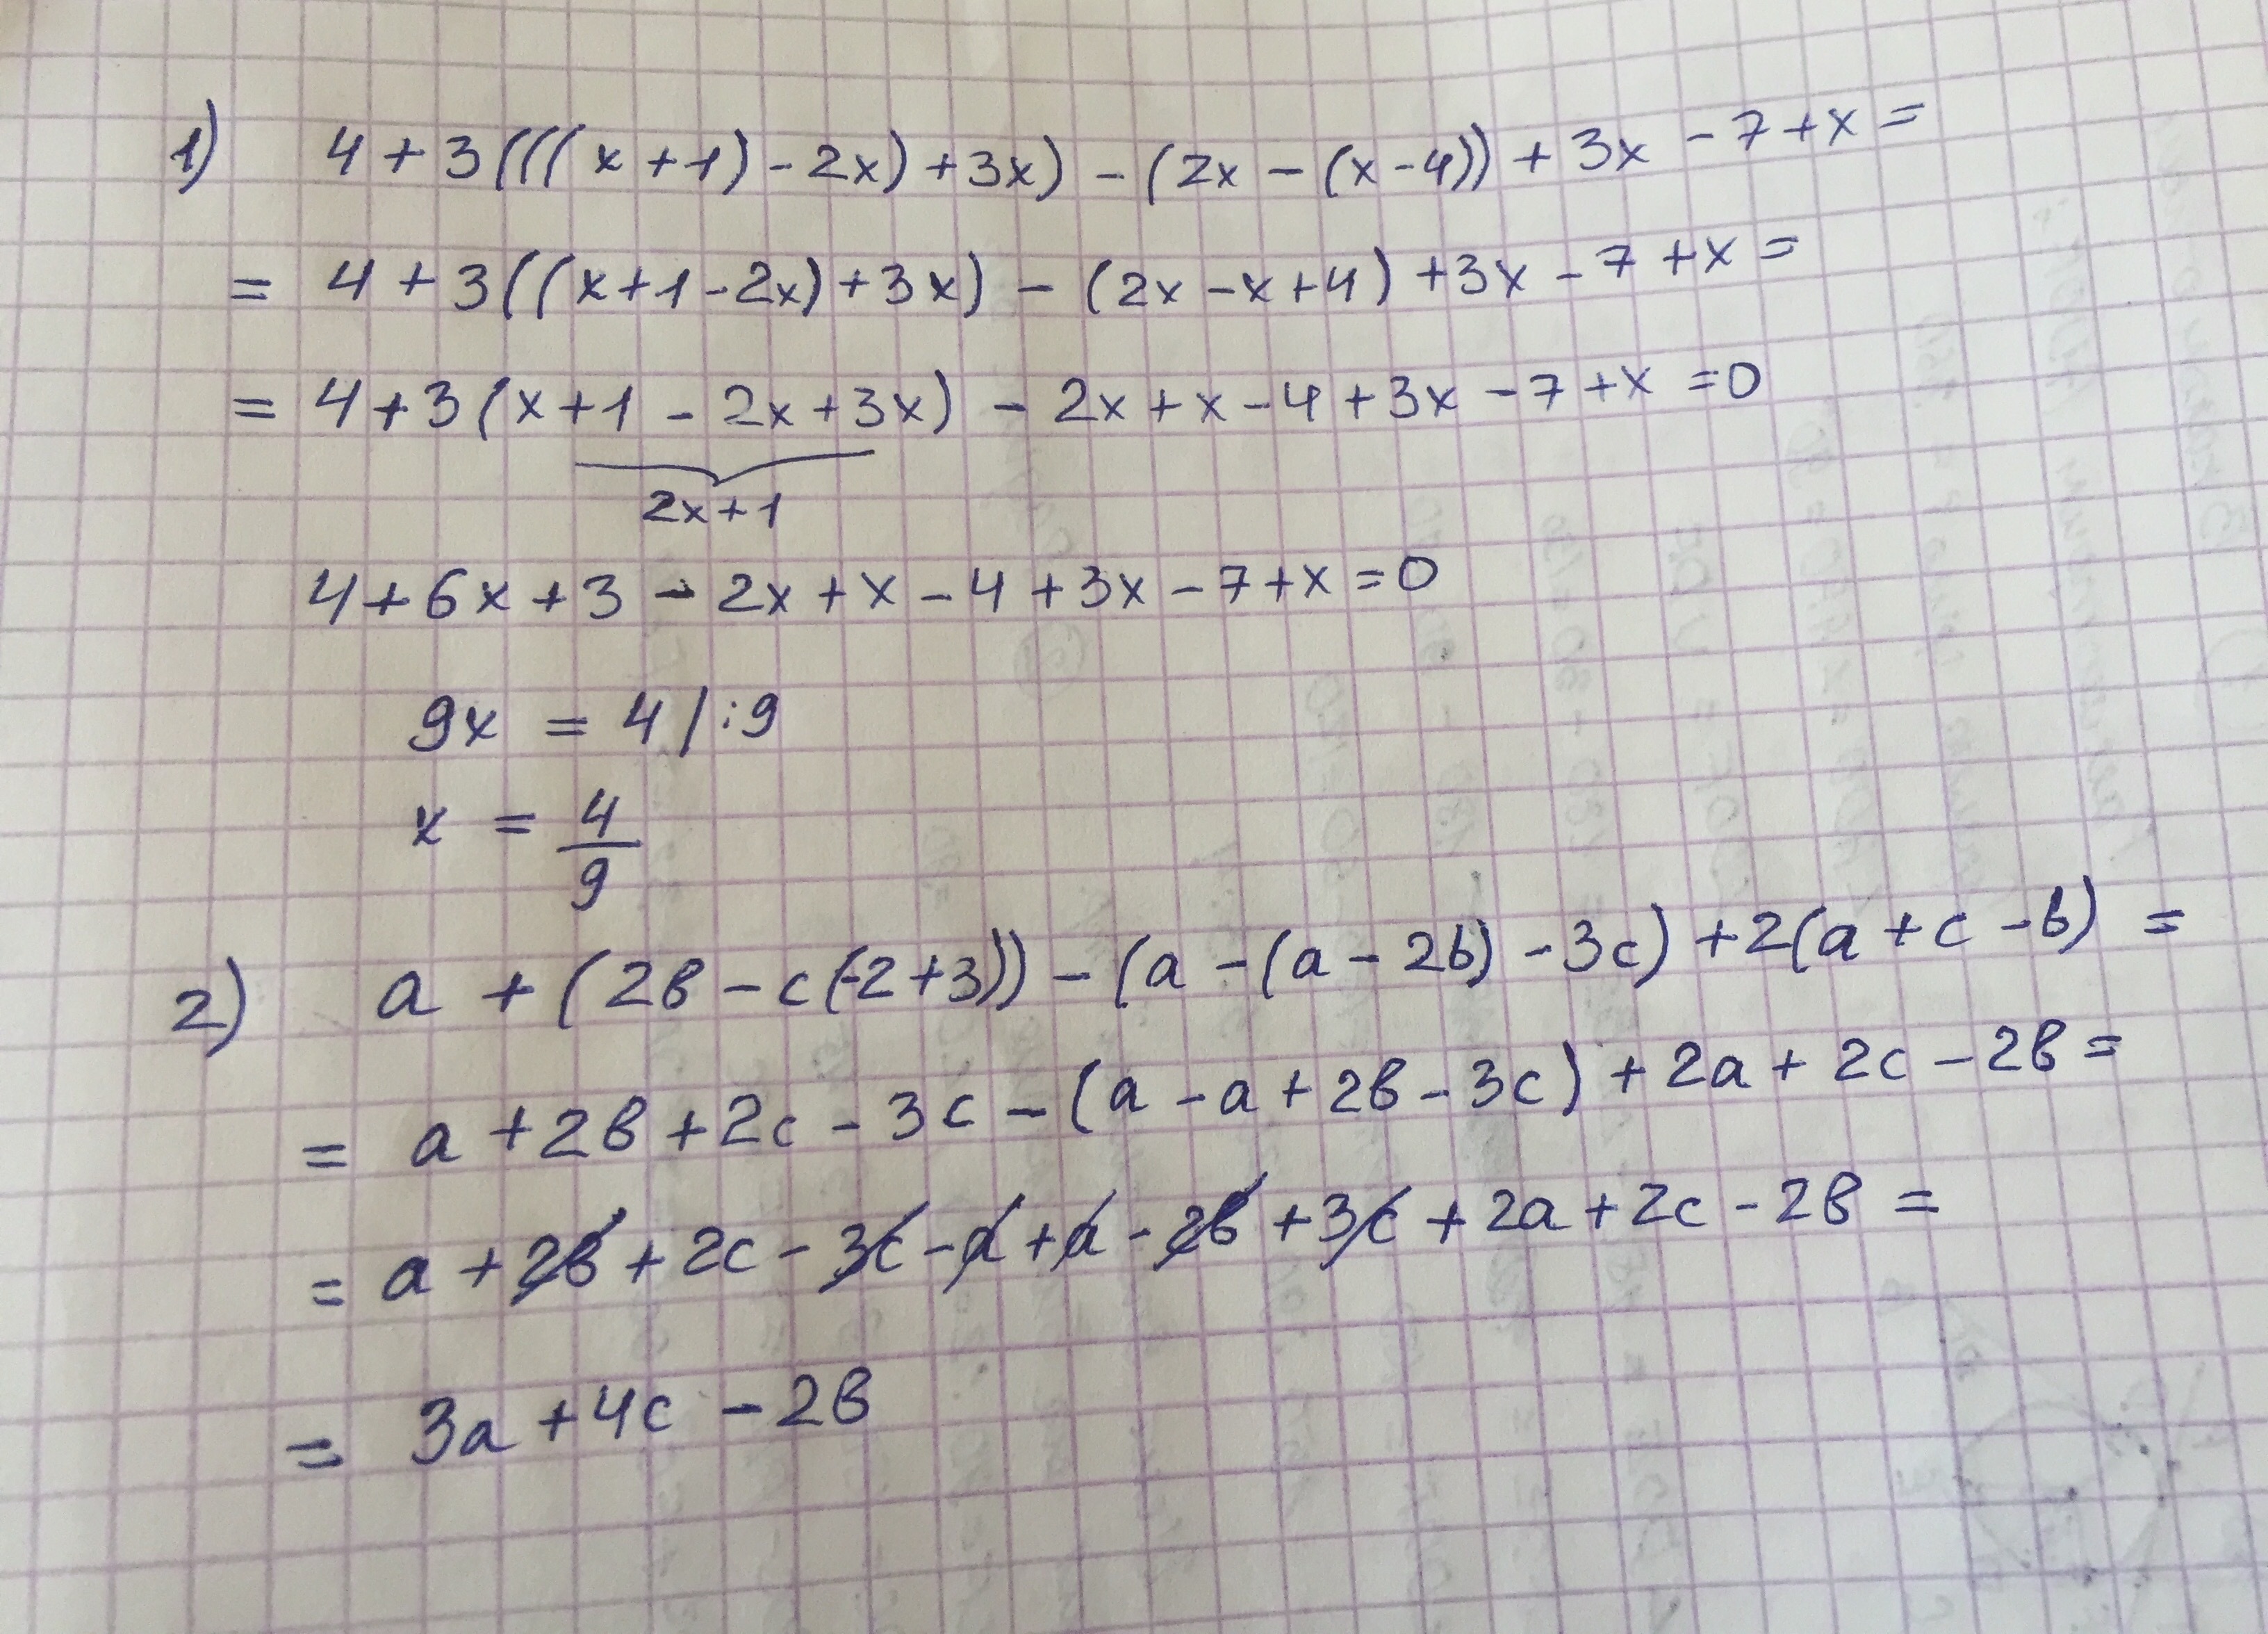 1) 4 + 3(((x+1) - 2x) + 3x) - (2x - (x-4)) + 3x - 7 + x =
= 4 + 3((x+1-2x) + 3x) - (2x - x + 4) + 3x - 7 + x =
= 4 + 3(x+1 - 2x + 3x) - 2x + x - 4 + 3x - 7 + x = 0
2x+1
4 + 6x + 3 - 2x + x - 4 + 3x - 7 + x = 0
9x = 4 /:9
x = 4/9
2) a + (2в - c(-2+3)) - (a - (a - 2b) - 3c) + 2(a + c - в) =
= a + 2в + 2c - 3c - (a - a + 2в - 3c) + 2a + 2c - 2в =
= a + 2в + 2c - 3c - a + a - 2в + 3c + 2a + 2c - 2в =
= 3a + 4c - 2в